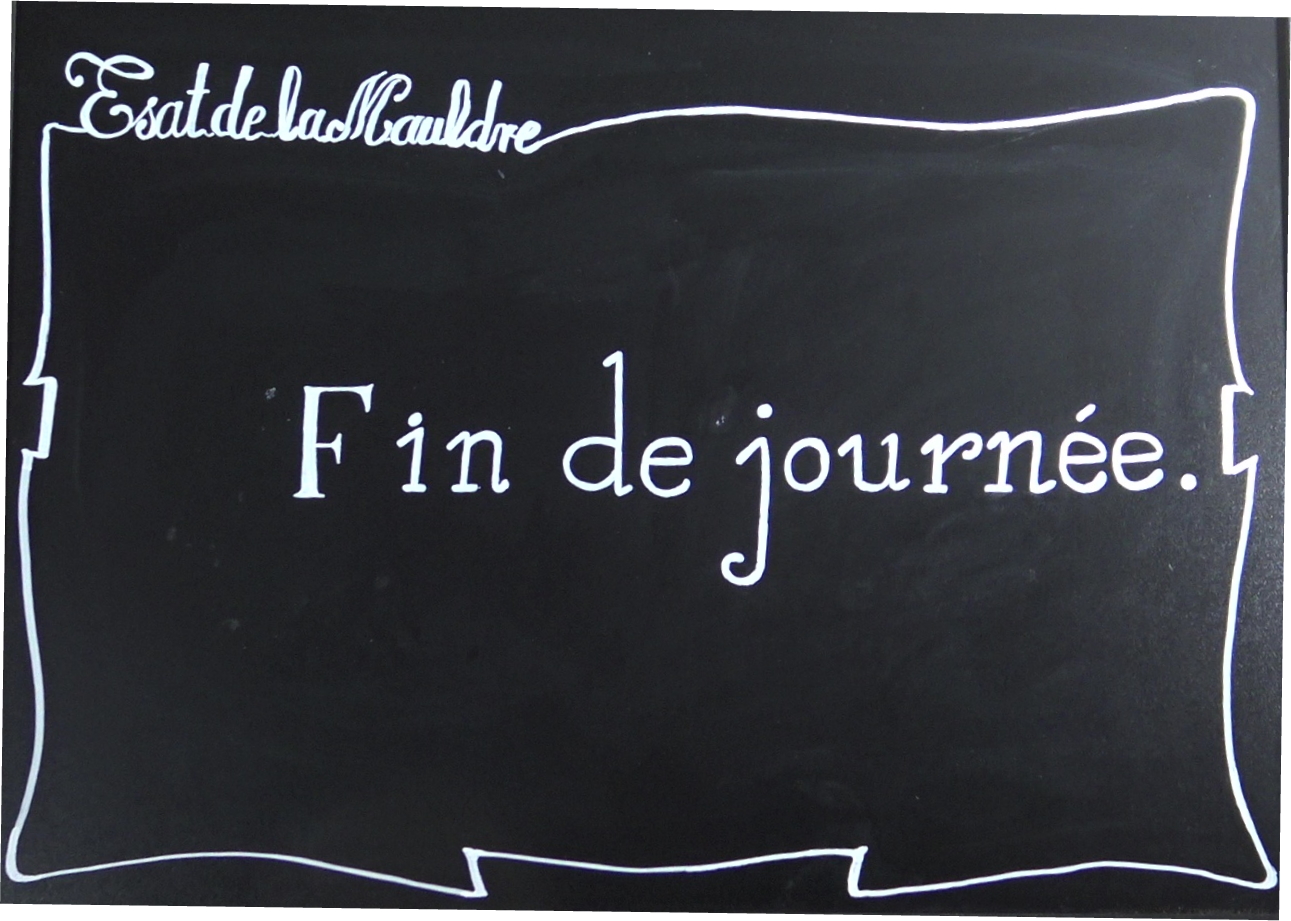 Esat de la Mauldre
Fin de journée.